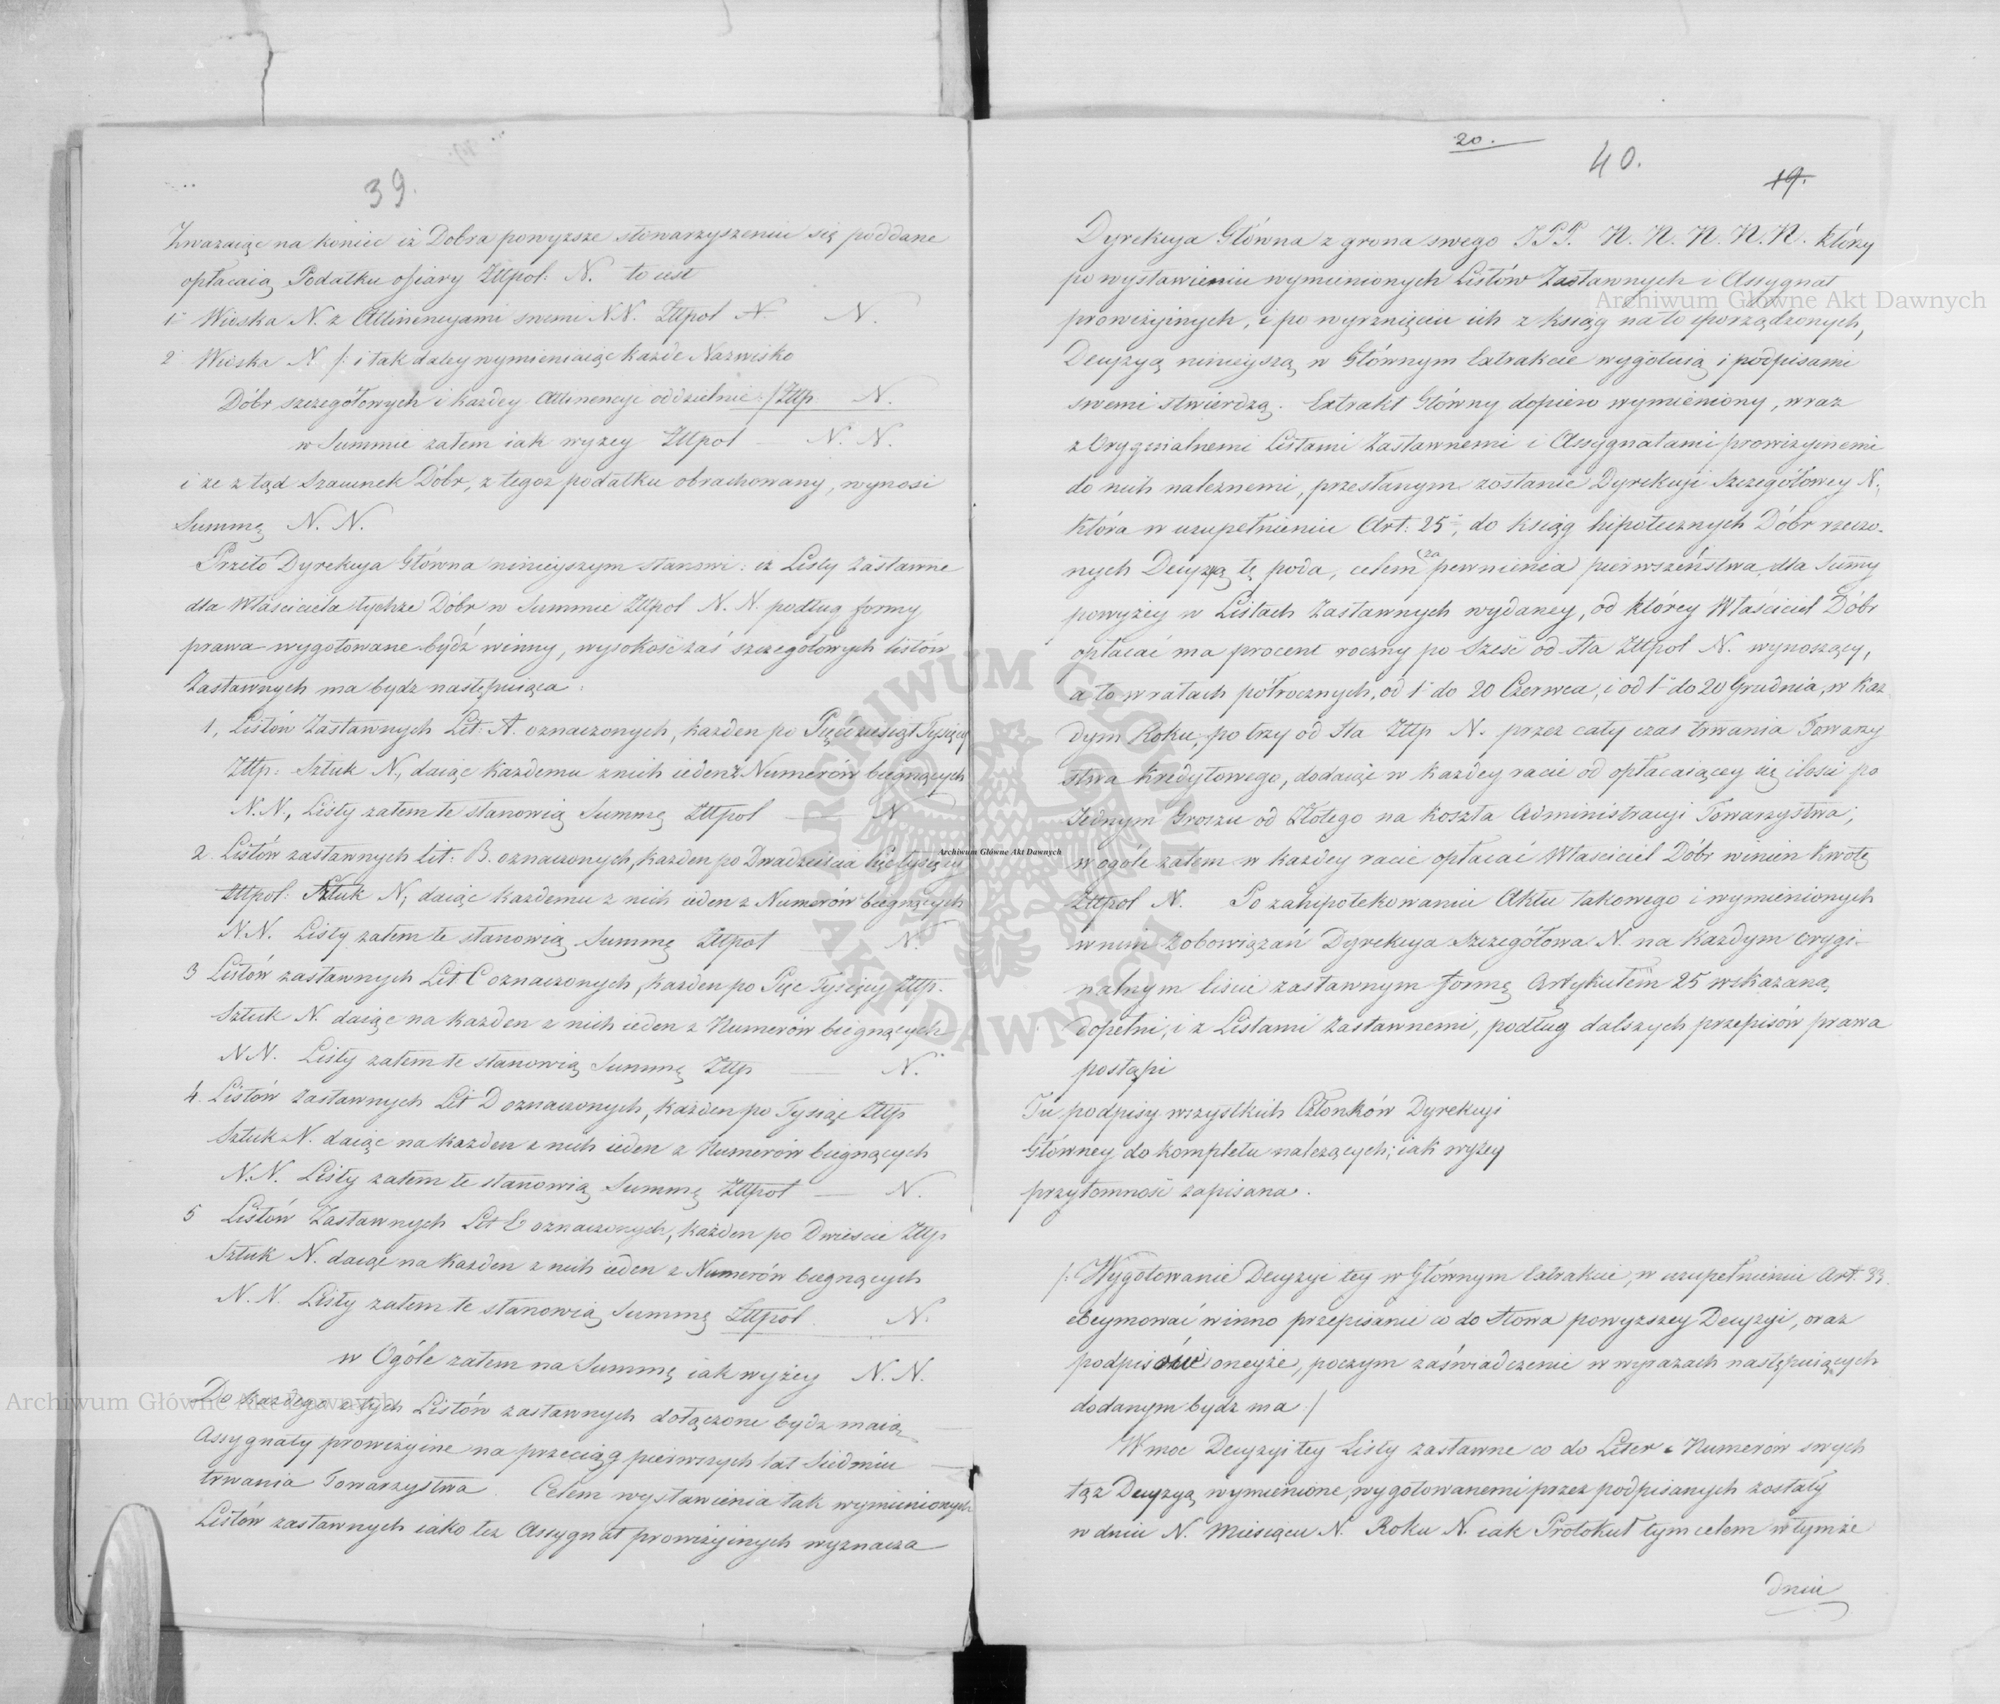 39.
Zważaiąc na koniec iż Dobra powyższe stowarzyszeniu się poddane
opłacaią Podatku ofiary Złtpol: N. to iest
1º Wioska N. z Attinencyami swemi N.N. Złtpol N. N.
2 Wioska N. /: i tak daley wymieniaiąc każde Nazwisko
Dóbr szczegółowych i każdey Attinencyi oddzielnie :/ Złtp N.
w Summie zatem iak wyżey Złtpol — N. N.
i że z tąd Szacunek Dóbr, z tegoż podatku obrachowany, wynosi
Summę N. N.
Przeto Dyrekcya Główna ninieyszym stanowi: iż Listy Zastawne
dla Właściciela tychże Dóbr w Summie Złtpol N. N. podług formy
prawa wygotowane bydź winny, wysokość zaś szczegółowych listów
Zastawnych ma bydz następuiąca:
1, Listów Zastawnych Lit: A. oznaczonych, każden po Pięćdziesiąt Tysięcy
Złtp: Sztuk N., daiąc każdemu z nich ieden z Numerów biegnących
N.N., Listy zatem te stanowią Summę Złtpol — N
2. Listów zastawnych lit: B. oznaczonych, każden po Dwadzieścia Pięć tysięcy
Złtpol: Sztuk N, daiąc każdemu z nich ieden z Numerów biegnących
N.N. Listy zatem te stanowią Summę Złtpol — N.
3 Listów zastawnych Lit C oznaczonych, każden po Pięć Tysięcy Złtp.
Sztuk N. daiąc na każden z nich ieden z Numerów biegnących
N.N. Listy zatem te stanowią Summę Złtp — N.
4. Listów Zastawnych Lit D oznaczonych, każden po Tysiąc Złtp
Sztuk N. daiąc na każden z nich ieden z Numerów biegnących
N.N. Listy zatem te stanowią Summę Złtpol — N.
5 Listów Zastawnych Lit E oznaczonych, każden po Dwieście Złtp
Sztuk N. daiąc na każden z nich ieden z Numerów biegnących
N. N. Listy zatem te stanowią Summę Złtpol. N.
w Ogóle zatem na Summę iak wyżey N. N.
Do każdego z tych Listów zastawnych dołączone bydz maią
Assygnaty prowizyine na przeciąg pierwszych lat Siedmiu
trwania Towarzystwa. Celem wystawienia tak wymienionych
Listów zastawnych iako też Assygnat prowizyinych wyznacza
20.
40.
19.
Dyrekcya Główna z grona swego JPP. N. N. N. N. N. którzy
po wystawieniu wymienionych Listów Zastawnych i Assygnat
prowizyinych, i po wyrznięciu ich z ksiąg na to sporządzonych,
Decyzyą ninieyszą w Głównym Extrakcie wygotuią i podpisami
swemi stwierdzą. Extrakt Główny dopiero wymieniony, wraz
z Oryginalnemi Listami Zastawnemi i Assygnatami prowizyinemi
do nich należnemi, przesłanym zostanie Dyrekcyi Szczegółowey N.,
która w uzupełnieniu Art: 25º, do ksiąg hipotecznych Dóbr rzeczo-
nych Decyzyą tę poda, celem zapewnienia pierwszeństwa dla Summy
powyżey w Listach Zastawnych wydaney, od którey Właściciel Dóbr
opłacać ma procent roczny po Sześć od Sta Złtpol N. wynoszący,
a to w ratach półrocznych, od 1º do 20 Czerwca, i od 1º do 20 Grudnia, w Każ
dym Roku, po trzy od Sta Złtp N. przez cały czas trwania Towarzy
stwa Kredytowego, dodaiąc w każdey racie od opłacaiącey się ilości po
Jednym Groszu od Złotego na koszta Administracyi Towarzystwa;
w ogóle zatem w każdey racie opłacać Właściciel Dóbr winien kwotę
Złtpol N. Po zahipotekowaniu Aktu takowego i wymienionych
w nim Zobowiązań Dyrekcya Szczegółowa N. na każdym orygi-
nalnym liście zastawnym formę Artykułem 25 wskazaną
dopełni, i z Listami Zastawnemi, podług dalszych przepisów prawa
postąpi
Tu podpisy wszystkich Członków Dyrekcyi
Główney do kompletu należących; iak wyżey
przytomność zapisana.
/: Wygotowanie Decyzyi tey w Głównym Extrakcie, w uzupełnieniu Art. 33.
obeymować winno przepisanie co do słowa powyższey Decyzyi, oraz
podpisów oneyże, poczym zaświadczenie w wyrazach następuiących
dodanym bydz ma :/
W moc Decyzyi tey Listy zastawne co do Liter i Numerów swych
tąż Decyzyą wymienione, wygotowanemi przez podpisanych zostały
w dniu N. Miesiącu N. Roku N. iak Protokuł tym celem w tymże
dniu
Archiwum Główne Akt Dawnych
Archiwum Główne Akt Dawnych
Archiwum Główne Akt Dawnych
ARCHIWUM GŁÓWNE AKT DAWNYCH